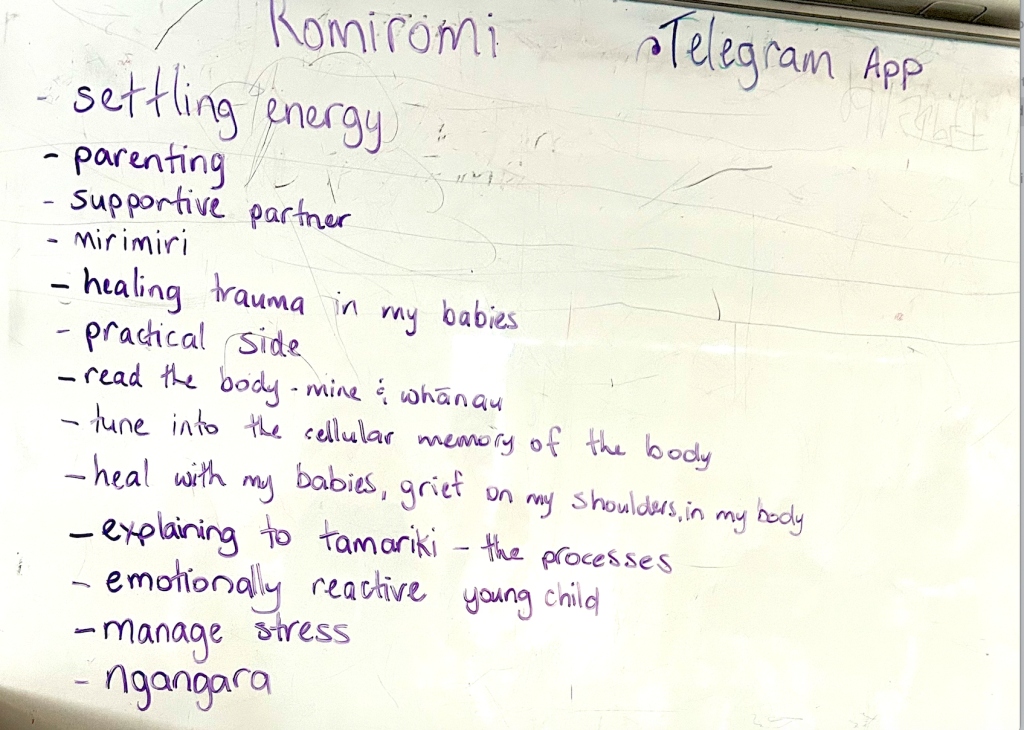 Romiromi
Telegram App
- settling energy
- parenting
- supportive partner
- mirimiri
- healing trauma in my babies
- practical side
- read the body - mine & whānau
- tune into the cellular memory of the body
- heal with my babies, grief on my shoulders, in my body
- explaining to tamariki - the processes
- emotionally reactive young child
- manage stress
- ngangara